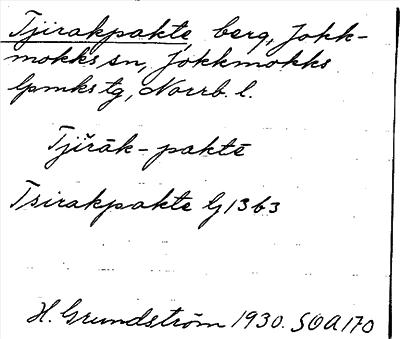 Tjirakpakte, berg, Jokk-
mokks sn, Jokkmokks
lpmks tg, Norrb. l.
Tjīrāk-paktē
Tsirakpakte G 13 b 3
H. Grundström 1930. SOA 170